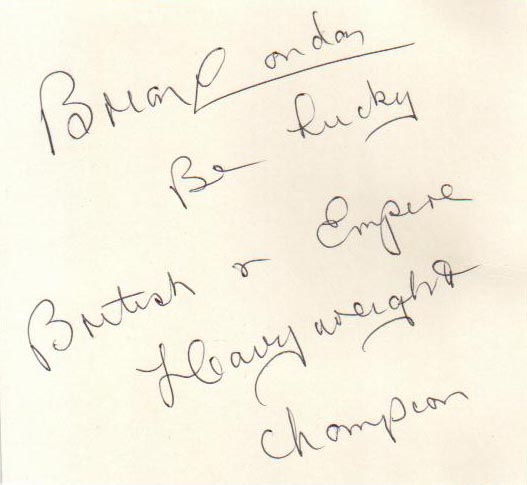 Brian London
Be lucky
British & Empire
Heavyweight
Champion